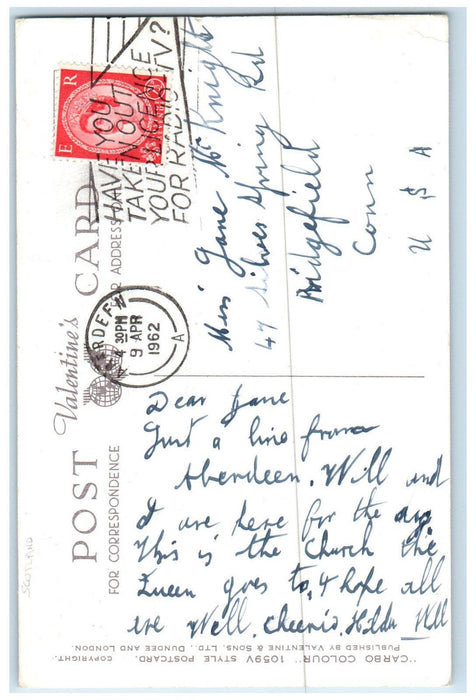 HAVE YOU
TAKEN OUT
YOUR LICENCE
FOR RADIO & TV?
E R
ABERDEEN
4 30PM
9 APR
1962
A
Valentine's
POST CARD
FOR CORRESPONDENCE
FOR ADDRESS
Miss Jane McKnight
47 Silver Spring Rd
Ridgefield
Conn
U S A
Dear Jane
Just a line from
Aberdeen. Will and
I are here for the day
This is the Church the
Queen goes to, I hope all
are Well. Cheerio. Hilda Will
SCOTLAND
"CARBO COLOUR" 1059V STYLE POSTCARD. COPYRIGHT.
PUBLISHED BY VALENTINE & SONS, LTD., DUNDEE AND LONDON.